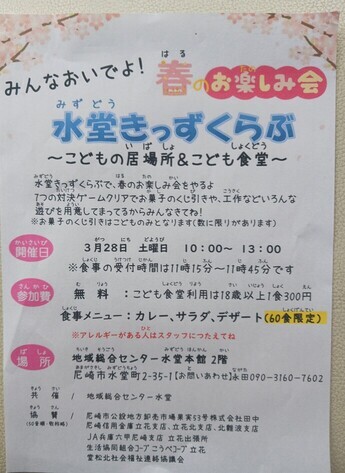 みんなおいでよ! 春のお楽しみ会
水堂きっずくらぶ
~こどもの居場所&こども食堂~
水堂きっずくらぶで、春のお楽しみ会をやるよ
7つの対決ゲームクリアでお菓子のくじ引きや、工作などいろんな
遊びを用意してまってるからみんなきてね!
※お菓子のくじ引きはこどものみとなります(数に限りがあります)
開催日 3月28日 土曜日 10:00~ 13:00
※食事の受付時間は11時15分~11時45分です
参加費 無料 :こども食堂利用は18歳以上1食300円
食事メニュー:カレー、サラダ、デザート(60食限定)
※アレルギーがある人はスタッフにつたえてね
場所 地域総合センター水堂本館2階
尼崎市水堂町2-35-1【お問い合わせ】永田090-3160-7602
共催 / 地域総合センター水堂
協賛 / 尼崎市公設地方卸売市場果実53号株式会社田中
尼崎信用金庫立花支店、立花北支店、北難波支店
JA兵庫六甲尼崎支店 立花出張所
生活協同組合コープこうべコープ立花
堂松北社会福祉連絡協議会